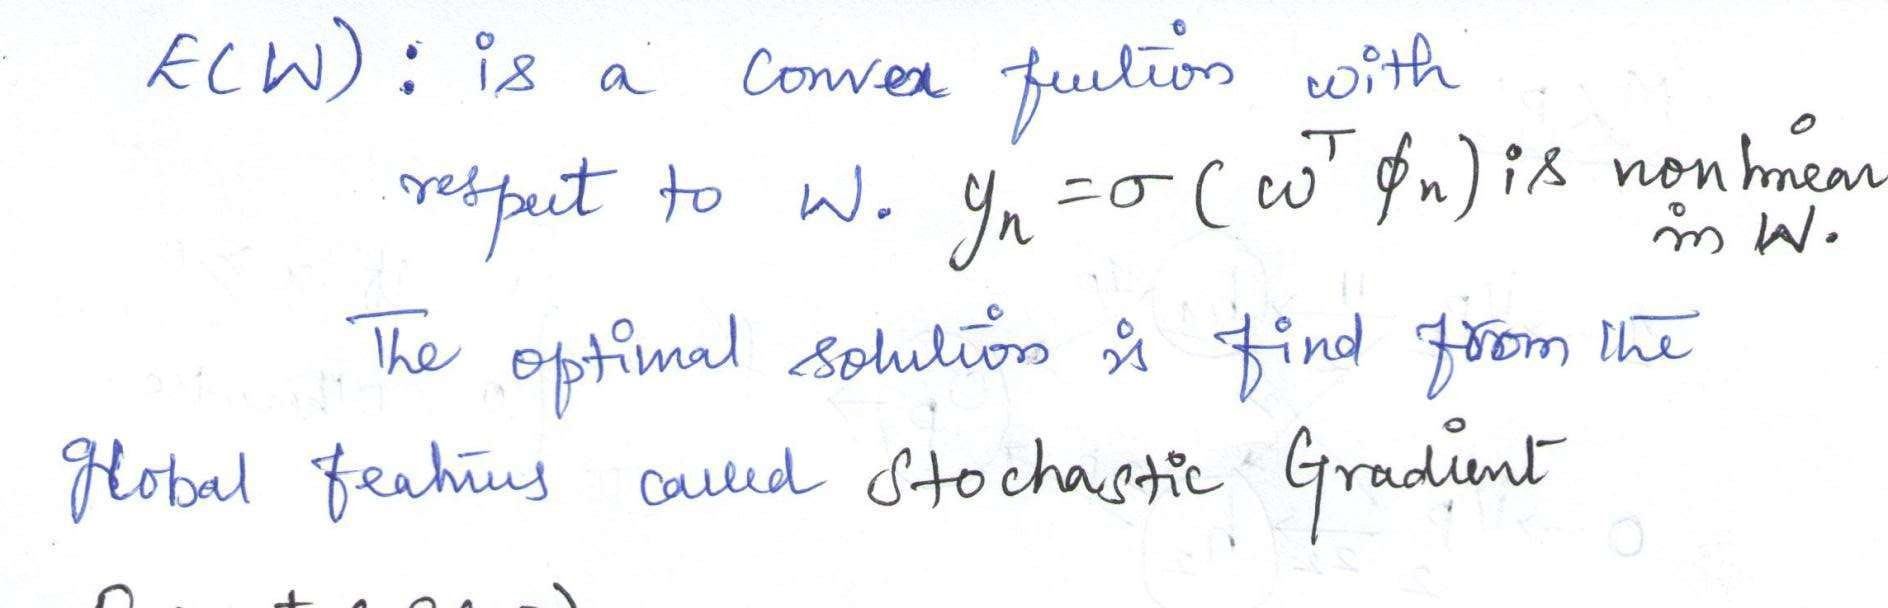 E(W) : is a convex fuction with
respect to W. yₙ = σ(ωᵀ ϕₙ) is nonlinear
in W.
The optimal solution is find from the
global features called Stochastic Gradient